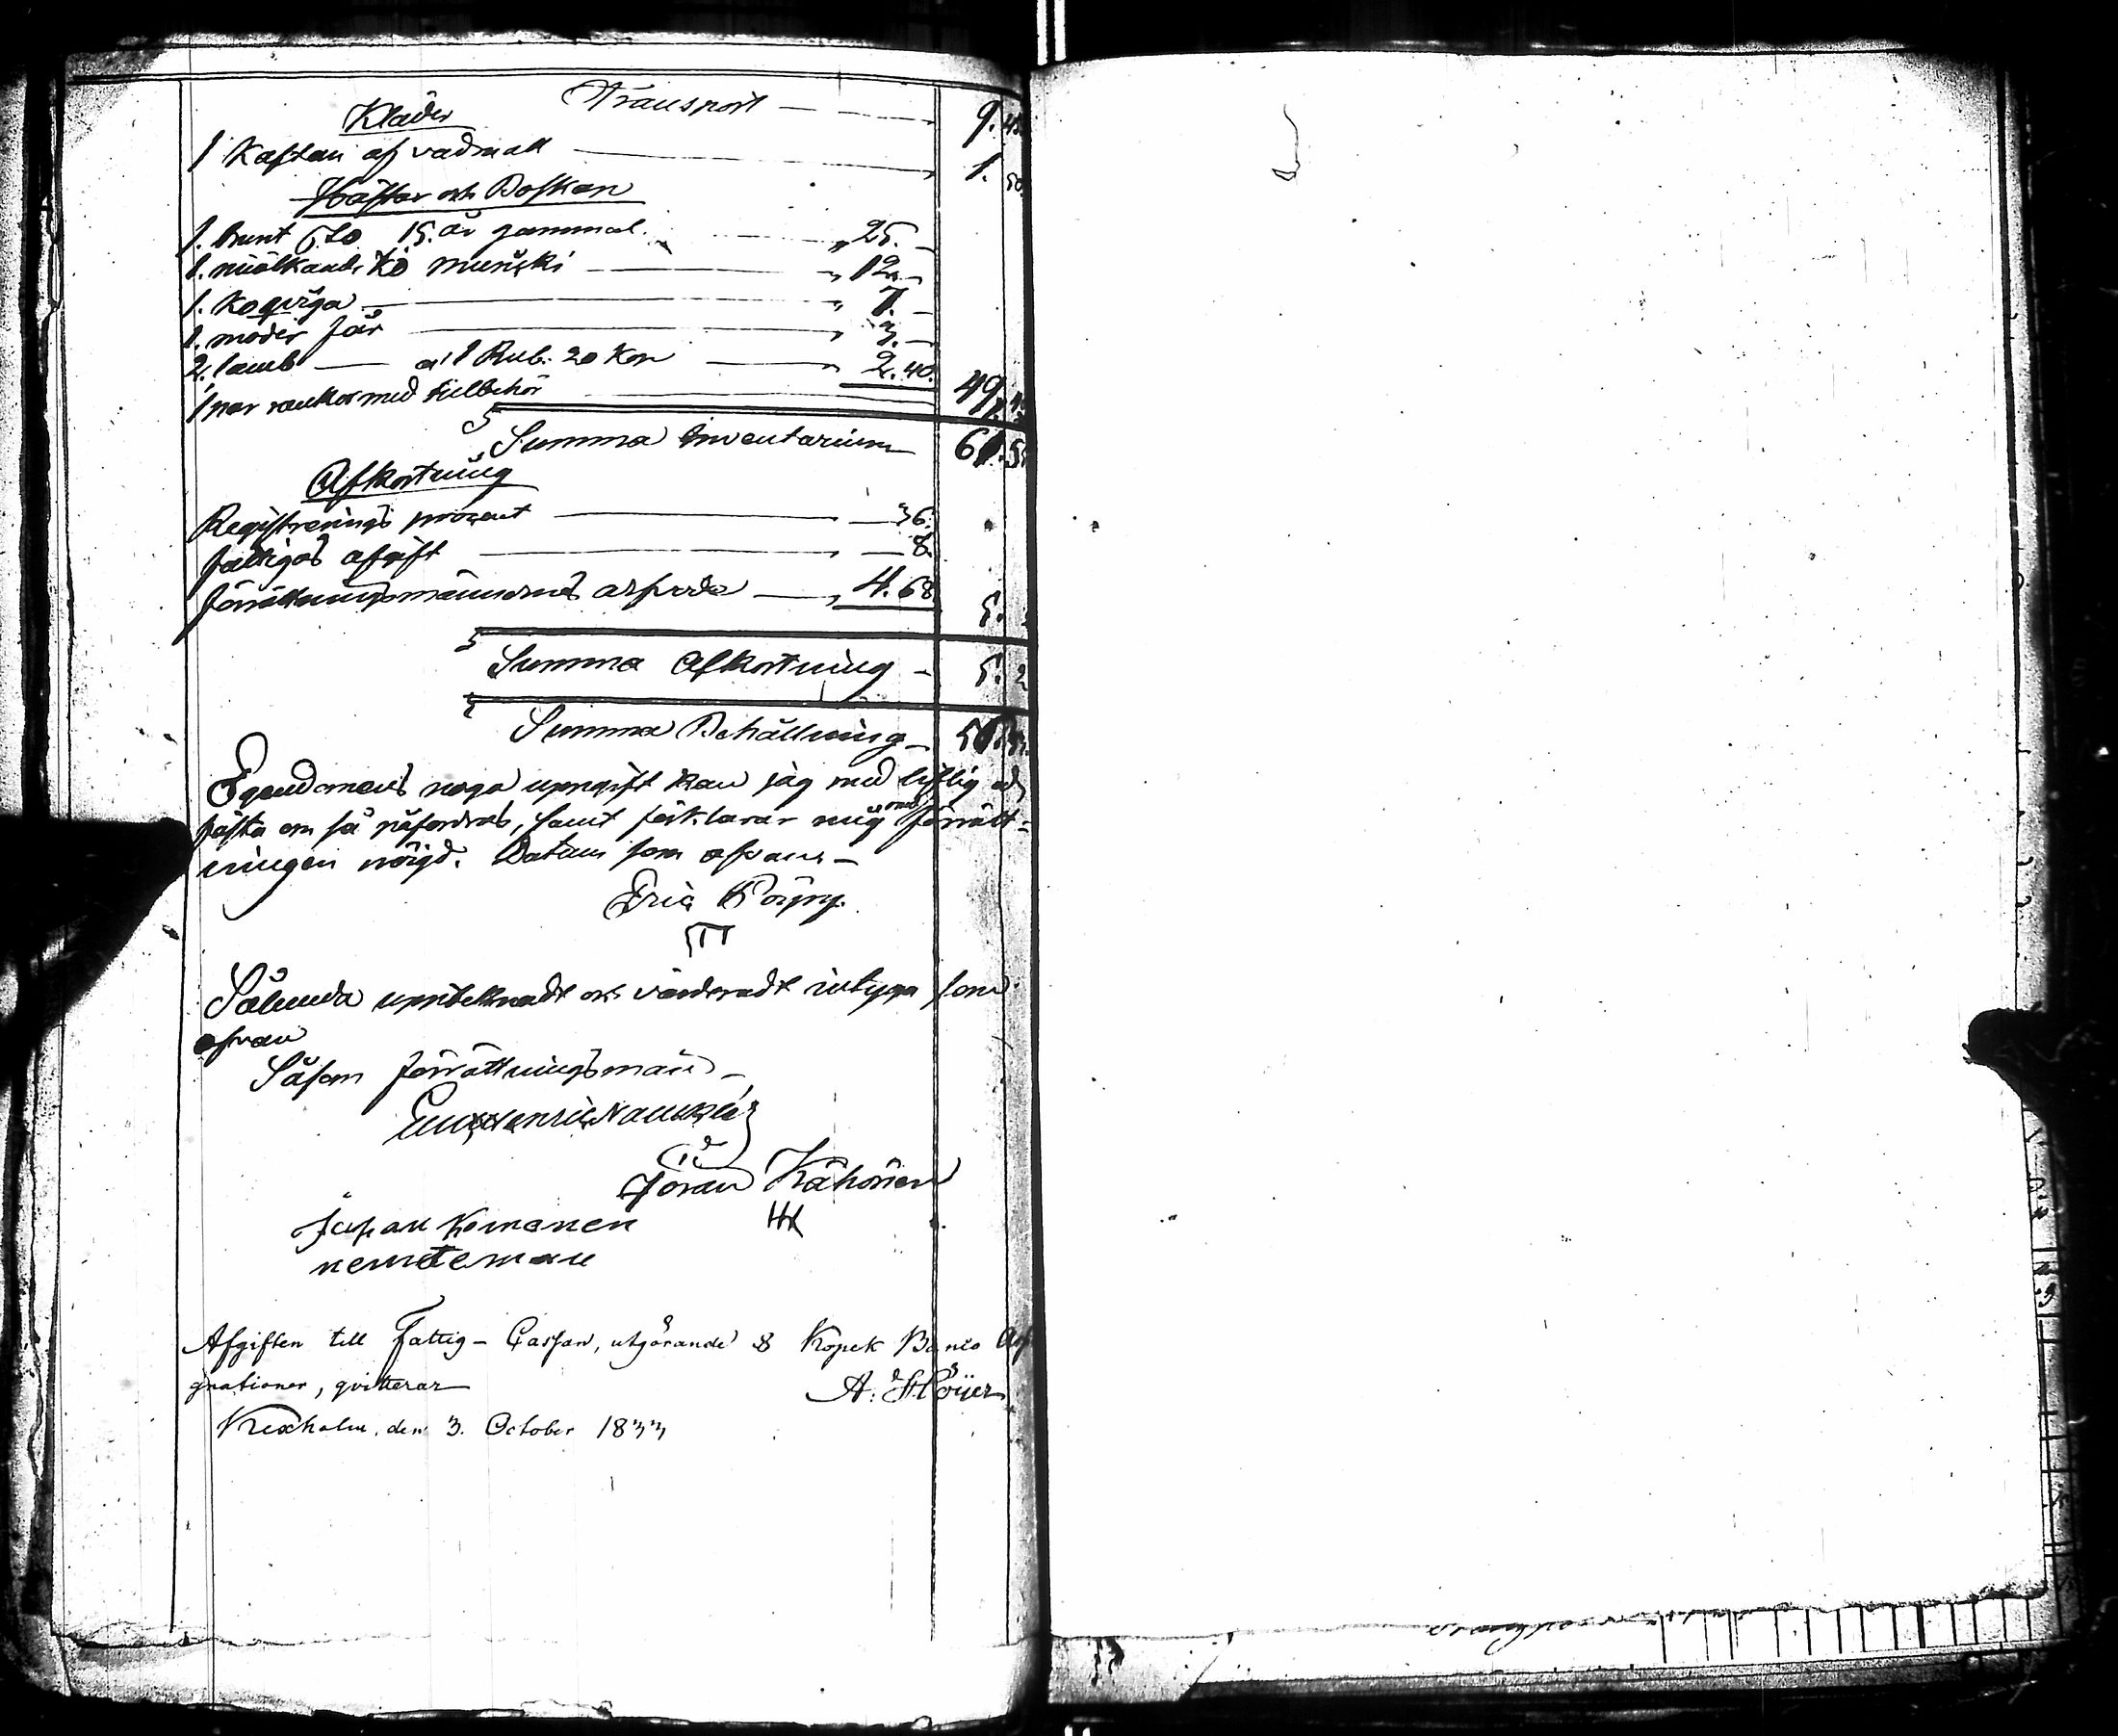 Transport — 9. 
Kläder
1 Kaftan af vadmall — 1. 50
Hästar och Boskap
1. brunt Sto 15. år gammal. — " 25. —
1. miölkande Ko Muriki — " 12. —
1. Koqviga — " 7. —
1. moder får — " 3. —
2. lamb — a' 1 Rub. 20 Kop — " 2. 40.
1 par rankor med tillbehör — 49.
Summa Inventarium 61.
Afkortning
Registrerings procent — 36.
fattigas afgift — 8.
förrättningsmännernes arfvode — 4. 68. 5.
Summa Afkortning — 5.
Summa Behållning —
Egendomens noga uppgift kan jag med liflig ed
fästa om så påfordras, samt förklarar mig med förrätt-
ningen nöigd. Datum som ofvan —
Eric
Sålunda upptecknadt och värderadt intyga som
ofvan
Såsom förrättningsmän —
Göran Kähönen
Juhan Komonen
nemdeman
Afgiften till Fattig-Cassan, utgörande 8 Kopek Banco Assi
gnationer, qvitterar
A. Höijer
Kexholm, den 3. October 1833